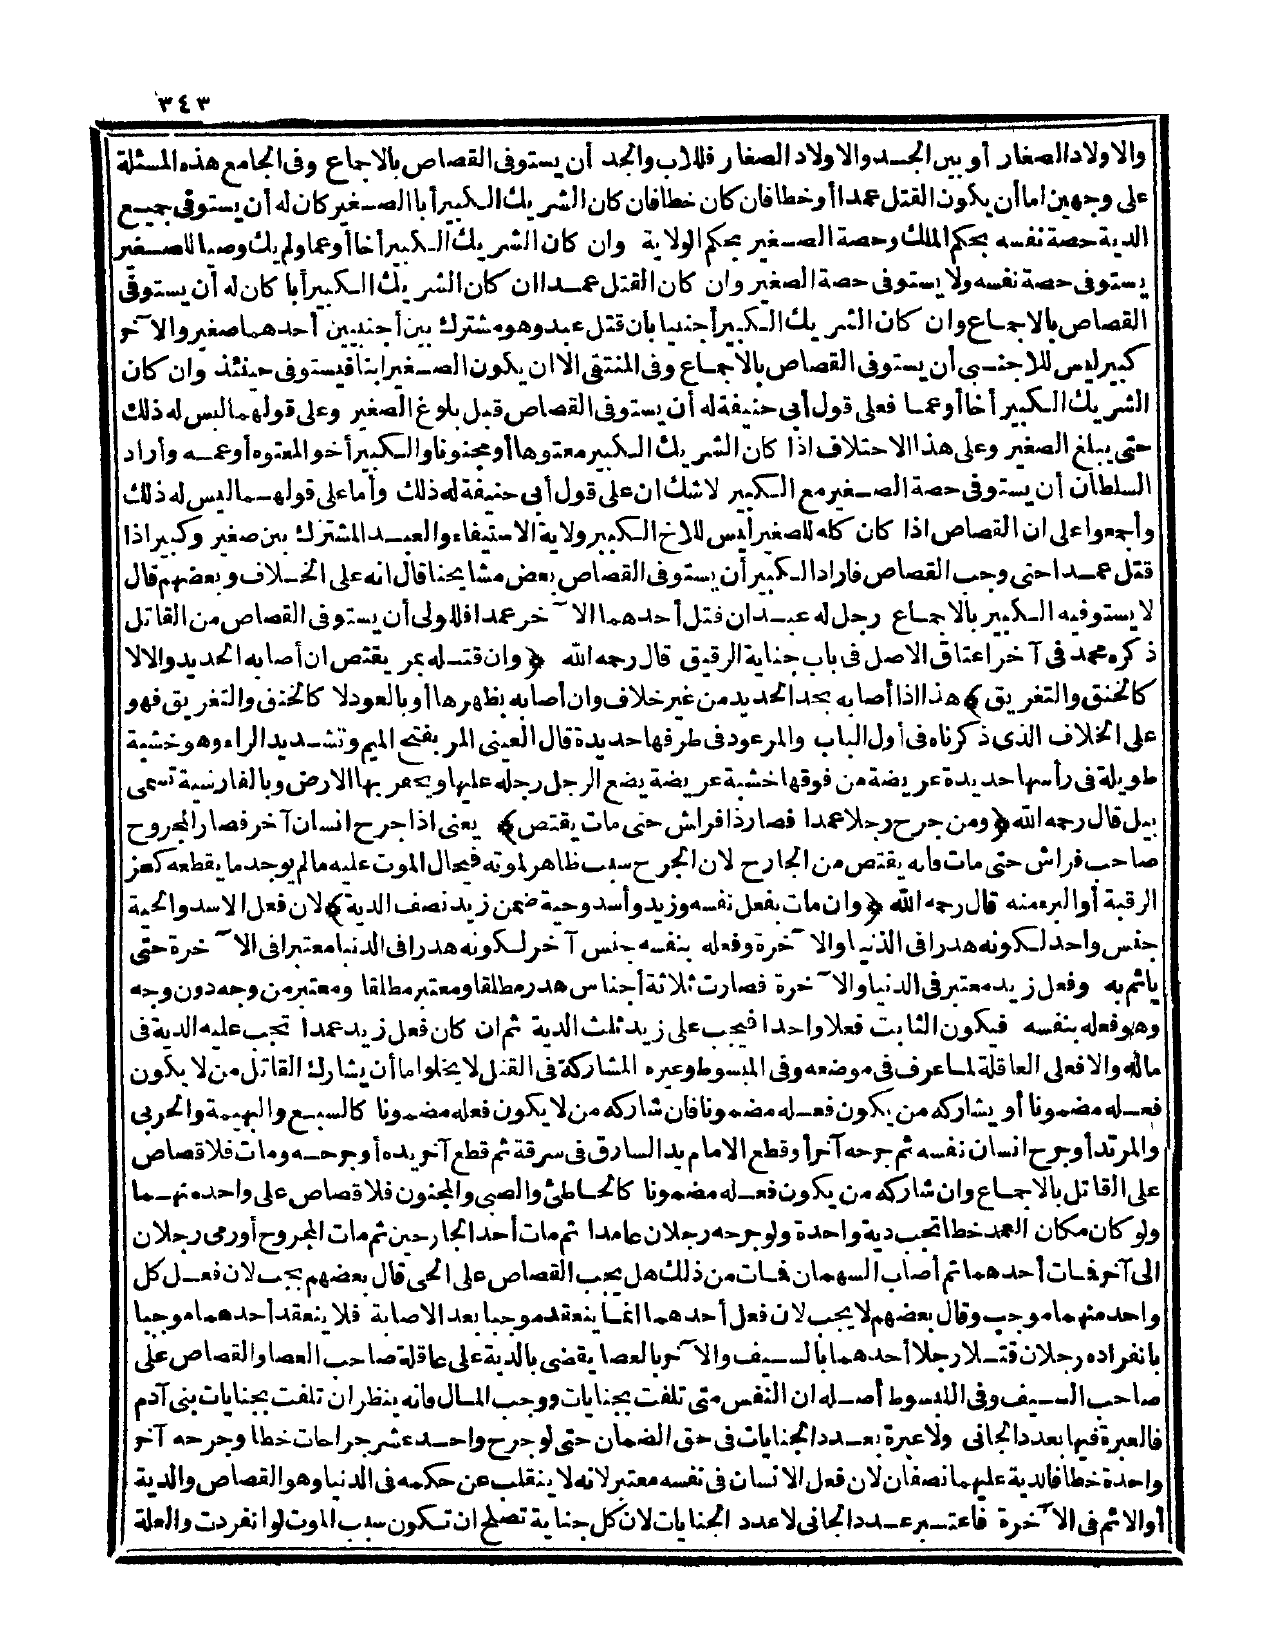 ٣٤٣
والاولاد الصغار أو بين الجد والاولاد الصغار فللاب والجد أن يستوفى القصاص بالاجماع وفى الجامع هذه المسئلة
على وجهين اما أن يكون القتل عمدا أو خطا فان كان خطا فان كان الشريك الكبير أبا الصغير كان له أن يستوفى جميع
الدية حصة نفسه بحكم الملك وحصة الصغير بحكم الولاية وان كان الشريك الكبير أخا أو عما ولم يك وصيا للصغير
يستوفى حصة نفسه ولا يستوفى حصة الصغير وان كان القتل عمدا ان كان الشريك الكبير أبا كان له أن يستوفى
القصاص بالاجماع وان كان الشريك الكبير أجنبيا بأن قتل عبد وهو مشترك بين أجنبيين أحدهما صغير والآخر
كبير ليس للاجنبى أن يستوفى القصاص بالاجماع وفى المنتقى الا ان يكون الصغير ابنا فيستوفى حينئذ وان كان
الشريك الكبير أخا أو عما فعلى قول أبى حنيفة له أن يستوفى القصاص قبل بلوغ الصغير وعلى قولهما ليس له ذلك
حتى يبلغ الصغير وعلى هذا الاختلاف اذا كان الشريك الكبير معتوها أو مجنونا والكبير أخو المعتوه أو عمه وأراد
السلطان أن يستوفى حصة الصغير مع الكبير لا شك ان على قول أبى حنيفة له ذلك وأما على قولهما ليس له ذلك
وأجمعوا على ان القصاص اذا كان كله للصغير ليس للاخ الكبير ولاية الاستيفاء والعبد المشترك بين صغير وكبير اذا
قتل عمدا حتى وجب القصاص فاراد الكبير أن يستوفى القصاص بعض مشايخنا قال انه على الخلاف وبعضهم قال
لا يستوفيه الكبير بالاجماع رجل له عبدان قتل أحدهما الآخر عمدا فللولى أن يستوفى القصاص من القاتل
ذكره محمد فى آخر اعتاق الاصل فى باب جناية الرقيق قال رحمه الله ﴿وان قتله بمر يقتص ان أصابه الحديد والا لا
كالخنق والتغريق﴾ هذا اذا أصابه بحد الحديد من غير خلاف وان أصابه بظهرها أو بالعود لا كالخنق والتغريق فهو
على الخلاف الذى ذكرناه فى أول الباب والمر عود فى طرفها حديدة قال العينى المر بفتح الميم وتشديد الراء وهو خشبة
طويلة فى رأسها حديدة عريضة من فوقها خشبة عريضة يضع الرجل رجله عليها ويحفر بها الارض وبالفارسية تسمى
بيل قال رحمه الله ﴿ومن جرح رجلا عمدا فصار ذا فراش حتى مات يقتص﴾ يعنى اذا جرح انسان آخر فصار المجروح
صاحب فراش حتى مات فانه يقتص من الجارح لان الجرح سبب ظاهر لموته فيحال الموت عليه ما لم يوجد ما يقطعه كحز
الرقبة أو البرء منه قال رحمه الله ﴿وان مات بفعل نفسه وزيد وأسد وحية ضمن زيد نصف الدية﴾ لان فعل الاسد والحية
جنس واحد لكونه هدرا فى الدنيا والآخرة وفعله بنفسه جنس آخر لكونه هدرا فى الدنيا معتبرا فى الآخرة حتى
يأثم به وفعل زيد معتبر فى الدنيا والآخرة فصارت ثلاثة أجناس هدر مطلقا ومعتبر مطلقا ومعتبر من وجه دون وجه
وهو فعله بنفسه فيكون الثابت فعلا واحدا فيجب على زيد ثلث الدية ثم ان كان فعل زيد عمدا تجب عليه الدية فى
ماله والا فعلى العاقلة لما عرف فى موضعه وفى المبسوط وغيره المشاركة فى القتل لا يخلو اما أن يشارك القاتل من لا يكون
فعله مضمونا أو يشاركه من يكون فعله مضمونا فان شاركه من لا يكون فعله مضمونا كالسبع والبهيمة والحربى
والمرتد أو جرح انسان نفسه ثم جرحه آخر أو قطع الامام يد السارق فى سرقة ثم قطع آخر يده أو جرحه ومات فلا قصاص
على القاتل بالاجماع وان شاركه من يكون فعله مضمونا كالخاطئ والصبى والمجنون فلا قصاص على واحد منهما
ولو كان مكان العمد خطا تجب دية واحدة ولو جرحه رجلان عامدا ثم مات أحد الجارحين ثم مات المجروح أو رمى رجلان
الى آخر فمات أحدهما ثم أصاب السهمان فمات من ذلك هل يجب القصاص على الحى قال بعضهم يجب لان فعل كل
واحد منهما موجب وقال بعضهم لا يجب لان فعل أحدهما انما ينعقد موجبا بعد الاصابة فلا ينعقد أحدهما موجبا
بانفراده رجلان قتلا رجلا أحدهما بالسيف والآخر بالعصا يقضى بالدية على عاقلة صاحب العصا والقصاص على
صاحب السيف وفى المبسوط أصله ان النفس متى تلفت بجنايات ووجب المال فانه ينظر ان تلفت بجنايات بنى آدم
فالعبرة فيها بعدد الجانى ولا عبرة بعدد الجنايات فى حق الضمان حتى لو جرح واحد عشر جراحات خطا وجرحه آخر
واحدة خطا فالدية عليهما نصفان لان فعل الانسان فى نفسه معتبر لانه لا ينقلب عن حكمه فى الدنيا وهو القصاص والدية
أو الاثم فى الآخرة فاعتبر عدد الجانى لا عدد الجنايات لان كل جناية تصلح ان تكون سبب الموت لو انفردت والعلة